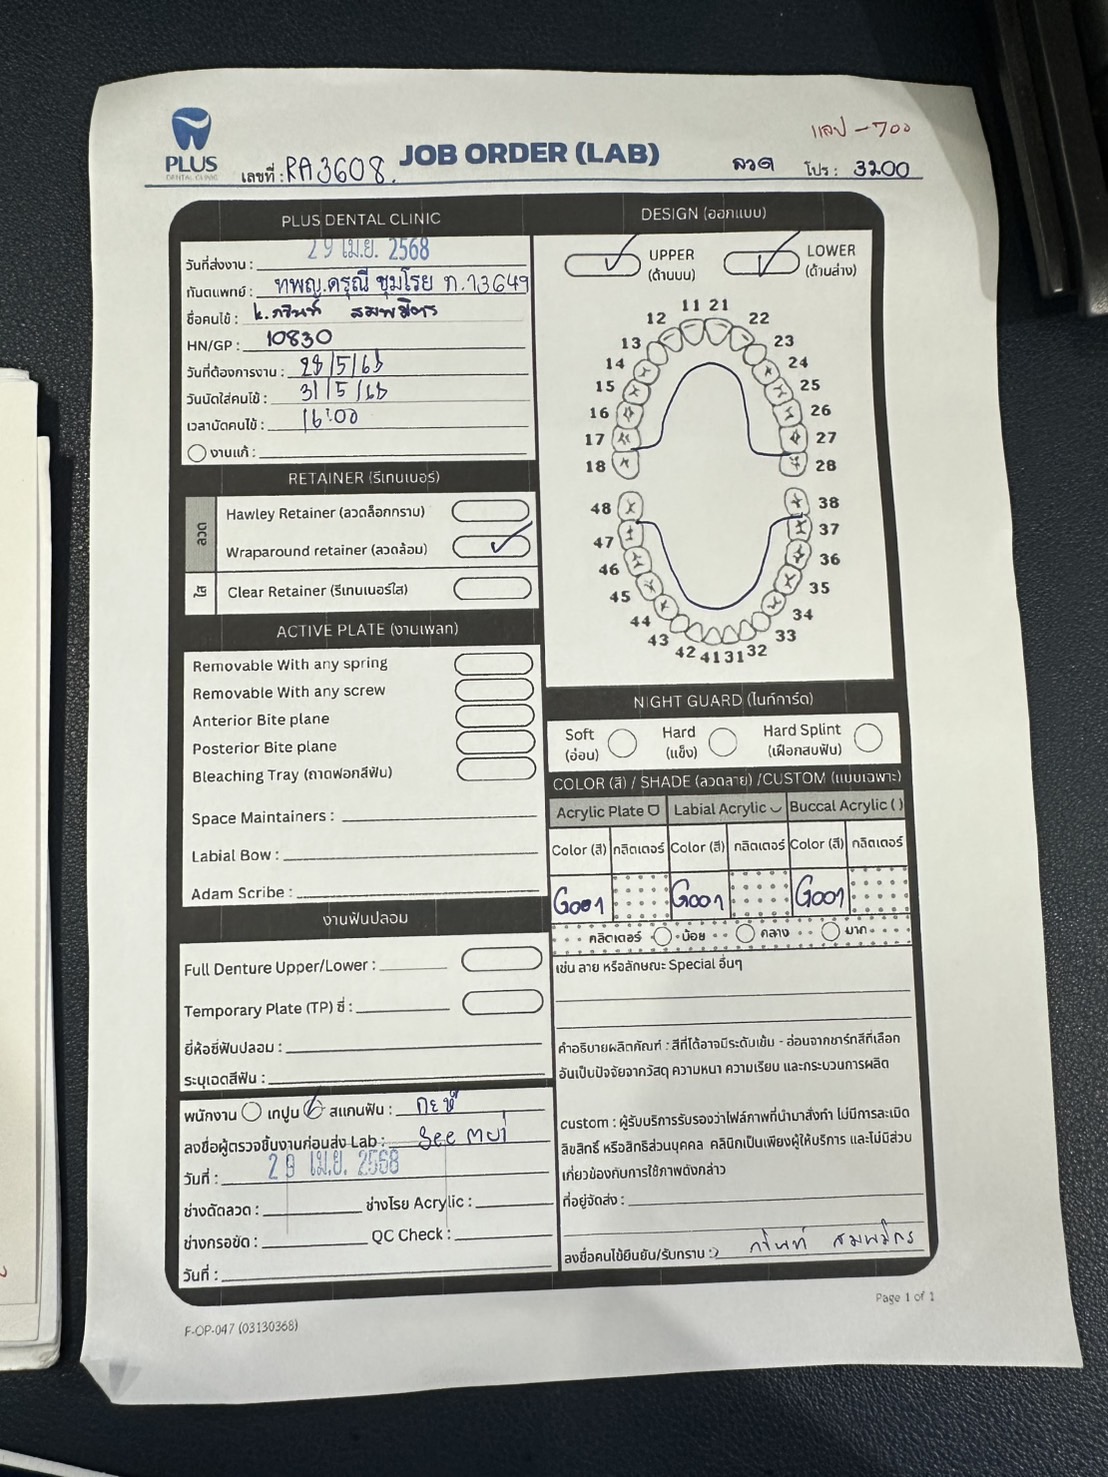 แลป - 700
PLUS
DENTAL CLINIC
เลขที่ : RA3608.
JOB ORDER (LAB)
ลวด
โปร : 3200
PLUS DENTAL CLINIC
วันที่ส่งงาน : 29 เม.ย. 2568
ทันตแพทย์ : ทพญ.ดรุณี ชุมโรย ท.13649
ชื่อคนไข้ : k.
HN/GP : 10830
วันที่ต้องการงาน : 28/5/68
วันนัดใส่คนไข้ : 31/5/68
เวลานัดคนไข้ : 16:00
งานแก้ :
RETAINER (รีเทนเนอร์)
ลวด
Hawley Retainer (ลวดล็อกกราม)
Wraparound retainer (ลวดล้อม)
ใส
Clear Retainer (รีเทนเนอร์ใส)
ACTIVE PLATE (งานเพลท)
Removable With any spring
Removable With any screw
Anterior Bite plane
Posterior Bite plane
Bleaching Tray (ถาดฟอกสีฟัน)
Space Maintainers :
Labial Bow :
Adam Scribe :
งานฟันปลอม
Full Denture Upper/Lower :
Temporary Plate (TP) ซี่ :
ยี่ห้อซี่ฟันปลอม :
ระบุเฉดสีฟัน :
พนักงาน เทปูน สแกนฟัน :
ลงชื่อผู้ตรวจชิ้นงานก่อนส่ง Lab :
วันที่ : 29 เม.ย. 2568
ช่างดัดลวด : ช่างโรย Acrylic :
ช่างกรอขัด : QC Check :
วันที่ :
DESIGN (ออกแบบ)
UPPER
(ด้านบน)
LOWER
(ด้านล่าง)
11 21
12 22
13 23
14 24
15 25
16 26
17 27
18 28
48 38
47 37
46 36
45 35
44 34
43 33
42 41 31 32
NIGHT GUARD (ไนท์การ์ด)
Soft
(อ่อน)
Hard
(แข็ง)
Hard Splint
(เฝือกสบฟัน)
COLOR (สี) / SHADE (ลวดลาย) /CUSTOM (แบบเฉพาะ)
Acrylic Plate Labial Acrylic Buccal Acrylic ( )
Color (สี) กลิตเตอร์ Color (สี) กลิตเตอร์ Color (สี) กลิตเตอร์
G001 G001 G001
กลิตเตอร์ น้อย กลาง มาก
เช่น ลาย หรือลักษณะ Special อื่นๆ
คำอธิบายผลิตภัณฑ์ : สีที่ได้อาจมีระดับเข้ม - อ่อนจากชาร์ทสีที่เลือก
อันเป็นปัจจัยจากวัสดุ ความหนา ความเรียบ และกระบวนการผลิต
custom : ผู้รับบริการรับรองว่าไฟล์ภาพที่นำมาสั่งทำ ไม่มีการละเมิด
ลิขสิทธิ์ หรือสิทธิส่วนบุคคล คลินิกเป็นเพียงผู้ให้บริการ และไม่มีส่วน
เกี่ยวข้องกับการใช้ภาพดังกล่าว
ที่อยู่จัดส่ง :
ลงชื่อคนไข้ยืนยัน/รับทราบ :
Page 1 of 1
F-OP-047 (03130368)